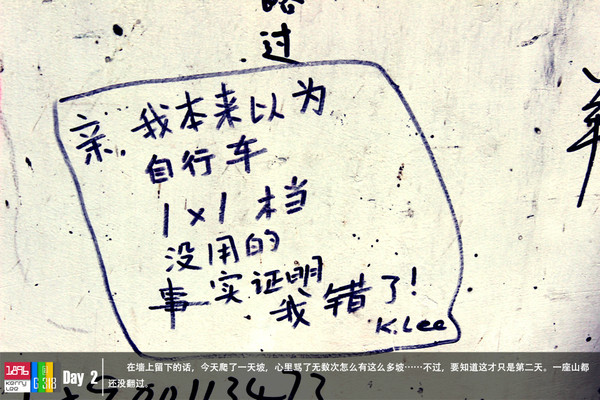 过
亲.我本来以为
自行车
1×1档
没用的
事实证明
我错了!
K.Lee
Kerry
Lee
G318
Day 2
在墙上留下的话,今天爬了一天坡,心里骂了无数次怎么有这么多坡……不过,要知道这才只是第二天。一座山都
还没翻过